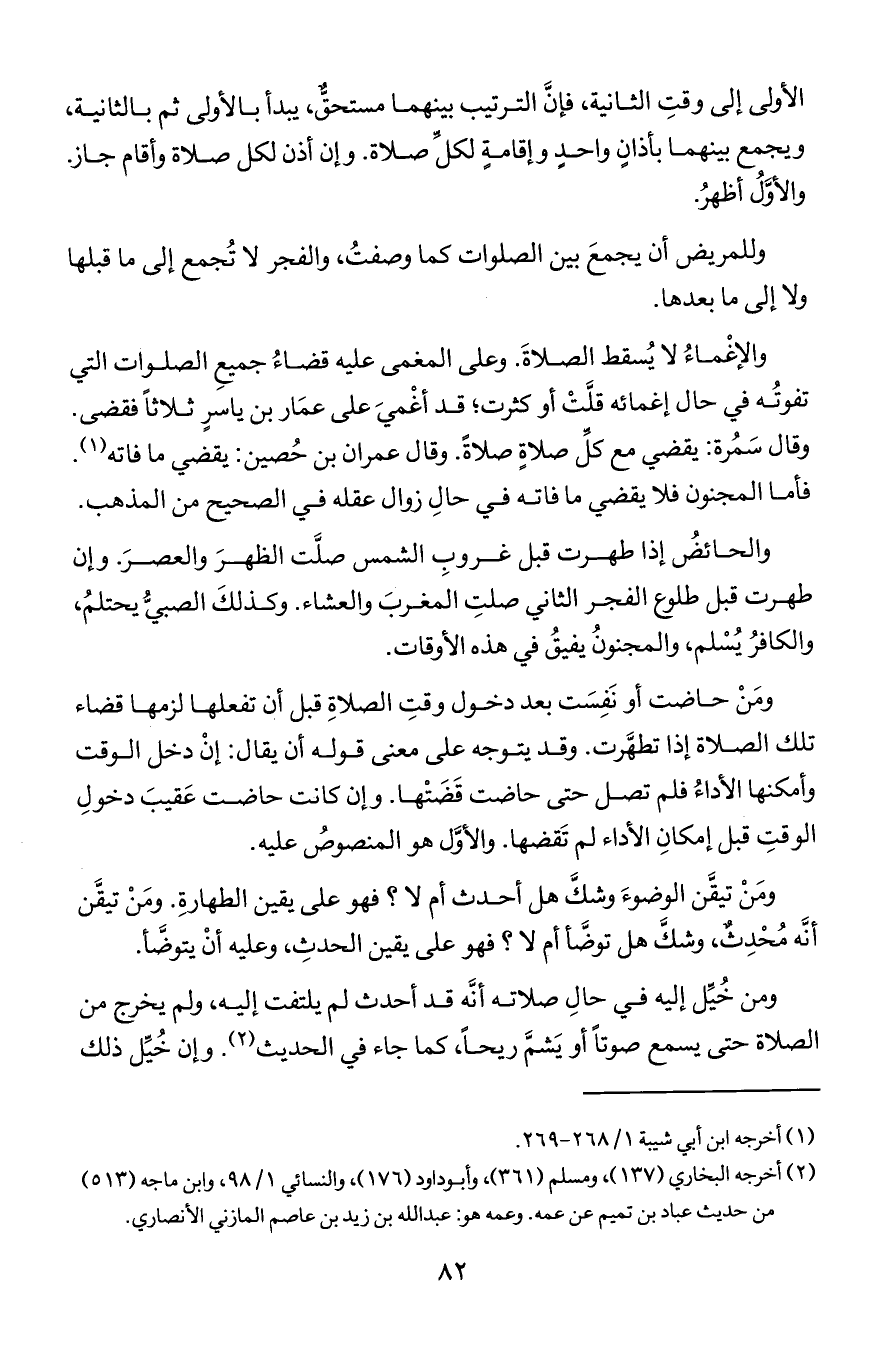 الأولى إلى وقتِ الثانية، فإنَّ الترتيب بينهما مستحقٌّ، يبدأ بالأولى ثم بالثانية،
ويجمع بينهما بأذانٍ واحدٍ وإقامةٍ لكلِّ صلاة. وإن أذن لكل صلاة وأقام جاز.
والأوَّلُ أظهرُ.
وللمريض أن يجمعَ بين الصلوات كما وصفتُ، والفجر لا تُجمع إلى ما قبلها
ولا إلى ما بعدها.
والإغْماءُ لا يُسقط الصلاةَ. وعلى المغمى عليه قضاءُ جميعِ الصلوات التي
تفوتُه في حال إغمائه قلَّتْ أو كثرت؛ قد أغْميَ على عمَار بن ياسرٍ ثلاثاً فقضى.
وقال سَمُرة: يقضي مع كلِّ صلاةٍ صلاةً. وقال عمران بن حُصين: يقضي ما فاته(١).
فأما المجنون فلا يقضي ما فاته في حالِ زوال عقله في الصحيح من المذهب.
والحائضُ إذا طهرت قبل غروبِ الشمس صلَّت الظهرَ والعصرَ. وإن
طهرت قبل طلوع الفجر الثاني صلتِ المغربَ والعشاء. وكذلكَ الصبيُّ يحتلمُ،
والكافرُ يُسْلم، والمجنونُ يفيقُ في هذه الأوقات.
ومَنْ حاضت أو نَفِسَت بعد دخول وقتِ الصلاةِ قبل أن تفعلها لزمها قضاء
تلك الصلاة إذا تطهَّرت. وقد يتوجه على معنى قوله أن يقال: إنْ دخل الوقت
وأمكنها الأداءُ فلم تصل حتى حاضت قَضَتْها. وإن كانت حاضت عَقيبَ دخولِ
الوقتِ قبل إمكانِ الأداء لم تَقضها. والأوَّل هو المنصوصُ عليه.
ومَنْ تيقَّن الوضوءَ وشكَّ هل أحدث أم لا ؟ فهو على يقين الطهارةِ. ومَنْ تيقَّن
أنَّه مُحْدِثٌ، وشكَّ هل توضَّأ أم لا ؟ فهو على يقين الحدثِ، وعليه أنْ يتوضَّأ.
ومن خُيِّل إليه في حالِ صلاته أنَّه قد أحدث لم يلتفت إليه، ولم يخرج من
الصلاة حتى يسمع صوتاً أو يَشمَّ ريحاً، كما جاء في الحديث(٢). وإن خُيِّل ذلك
(١) أخرجه ابن أبي شيبة ١/ ٢٦٨-٢٦٩.
(٢) أخرجه البخاري (١٣٧)، ومسلم (٣٦١)، وأبوداود (١٧٦)، والنسائي ١/ ٩٨، وابن ماجه (٥١٣)
من حديث عباد بن تميم عن عمه. وعمه هو: عبدالله بن زيد بن عاصم المازني الأنصاري.
٨٢